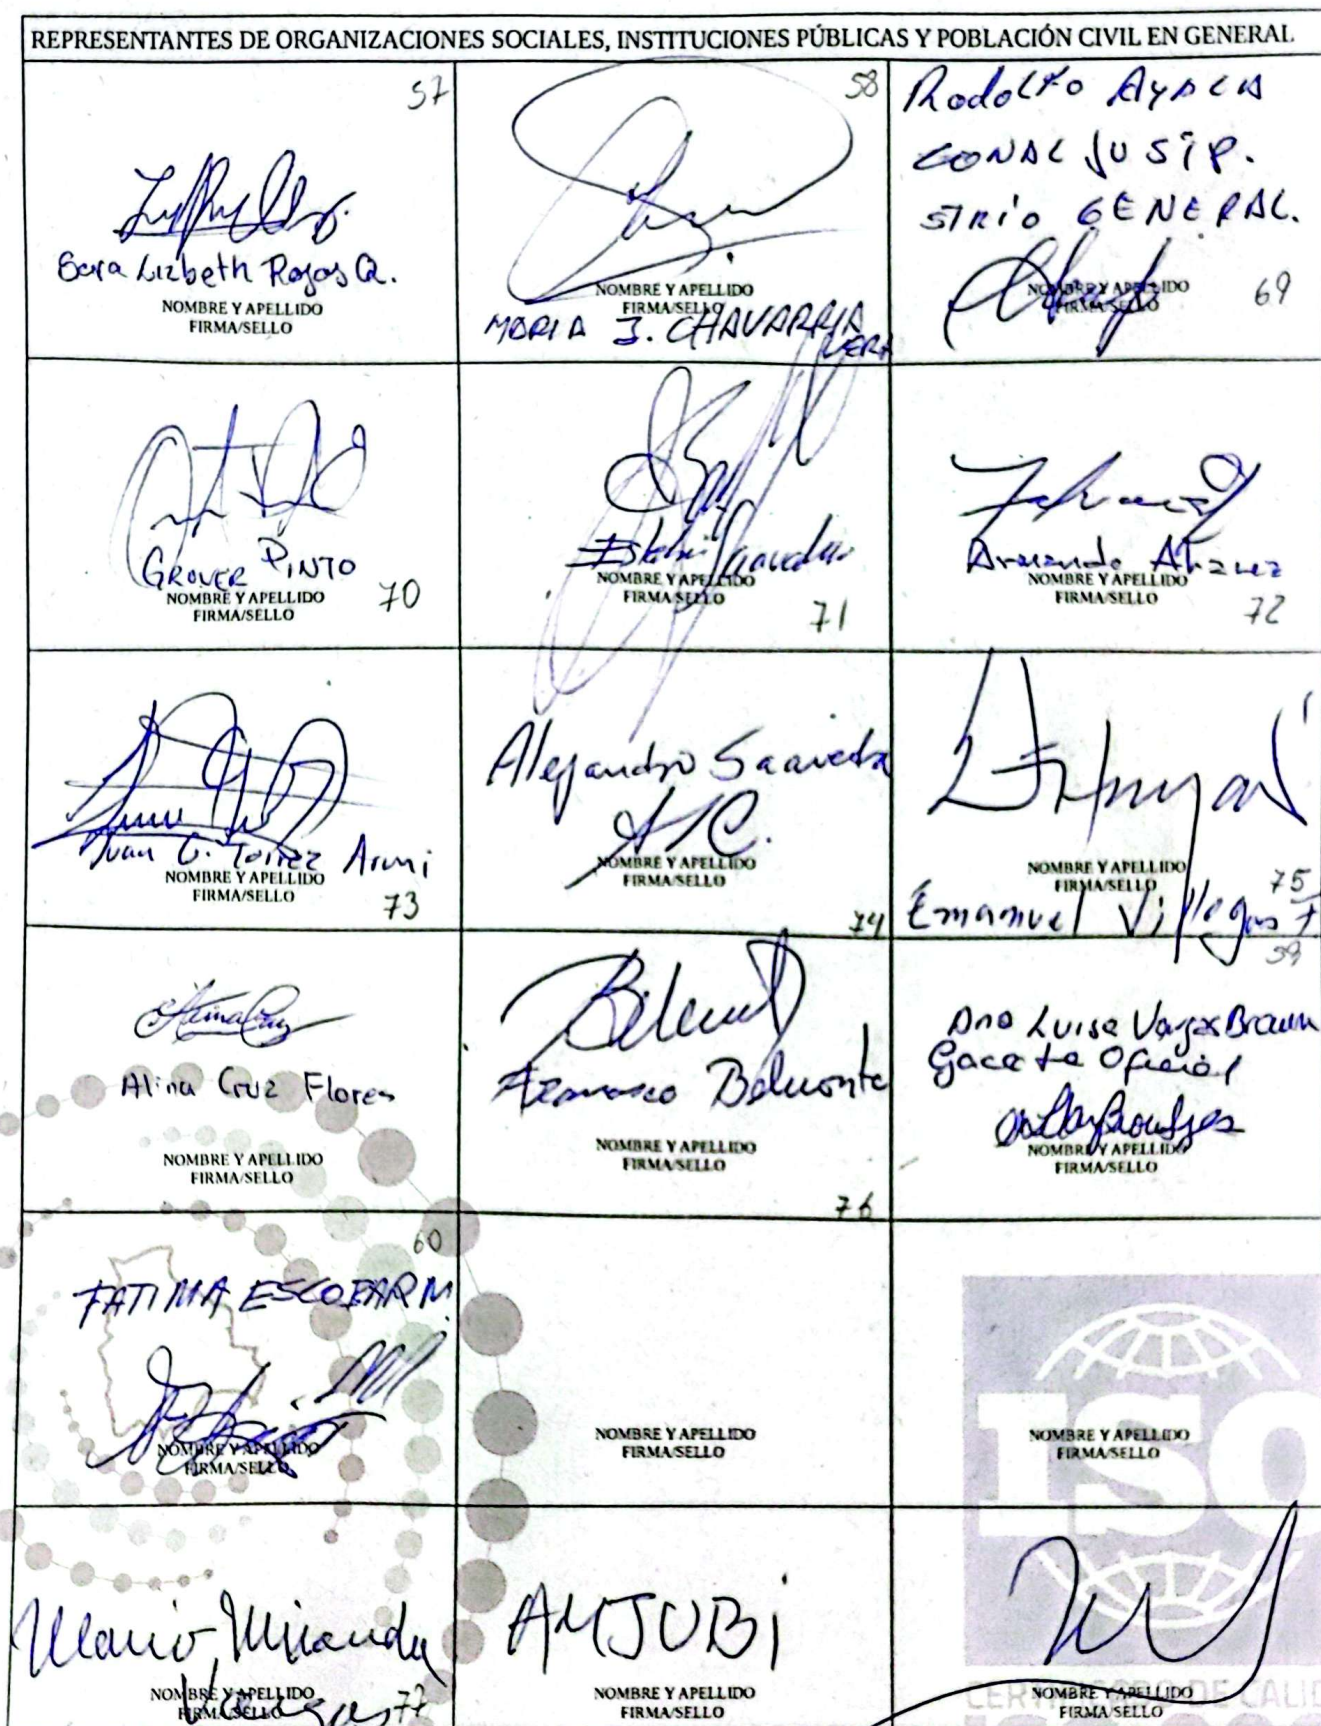 REPRESENTANTES DE ORGANIZACIONES SOCIALES, INSTITUCIONES PÚBLICAS Y POBLACIÓN CIVIL EN GENERAL
57
Sara Lizbeth Rojas Q.
NOMBRE Y APELLIDO
FIRMA/SELLO
58
NOMBRE Y APELLIDO
FIRMA/SELLO
MARIA J. CHAVARRIA
VERA
Rodolfo AyALA
CONALJUSIP.
STRIO GENERAL.
NOMBRE Y APELLIDO
FIRMA/SELLO
69
GROVER PINTO
NOMBRE Y APELLIDO
FIRMA/SELLO
70
Esteban Saavedra
NOMBRE Y APELLIDO
FIRMA/SELLO
71
Armando
NOMBRE Y APELLIDO
FIRMA/SELLO
72
Juan C. Torrez Aruni
NOMBRE Y APELLIDO
FIRMA/SELLO
73
Alejandro Saavedra
NOMBRE Y APELLIDO
FIRMA/SELLO
74
NOMBRE Y APELLIDO
FIRMA/SELLO
75
Emanuel Villegas
Alina Cruz Flores
NOMBRE Y APELLIDO
FIRMA/SELLO
Belmonte
NOMBRE Y APELLIDO
FIRMA/SELLO
76
59
Ana Luisa Vargas Braun
Gaceta Oficial
NOMBRE Y APELLIDO
FIRMA/SELLO
60
FATIMA ESCOBAR M.
NOMBRE Y APELLIDO
FIRMA/SELLO
NOMBRE Y APELLIDO
FIRMA/SELLO
ISO
NOMBRE Y APELLIDO
FIRMA/SELLO
Mario Miranda
Vargas
NOMBRE Y APELLIDO
FIRMA/SELLO
77
AMJUBI
NOMBRE Y APELLIDO
FIRMA/SELLO
NOMBRE Y APELLIDO
FIRMA/SELLO